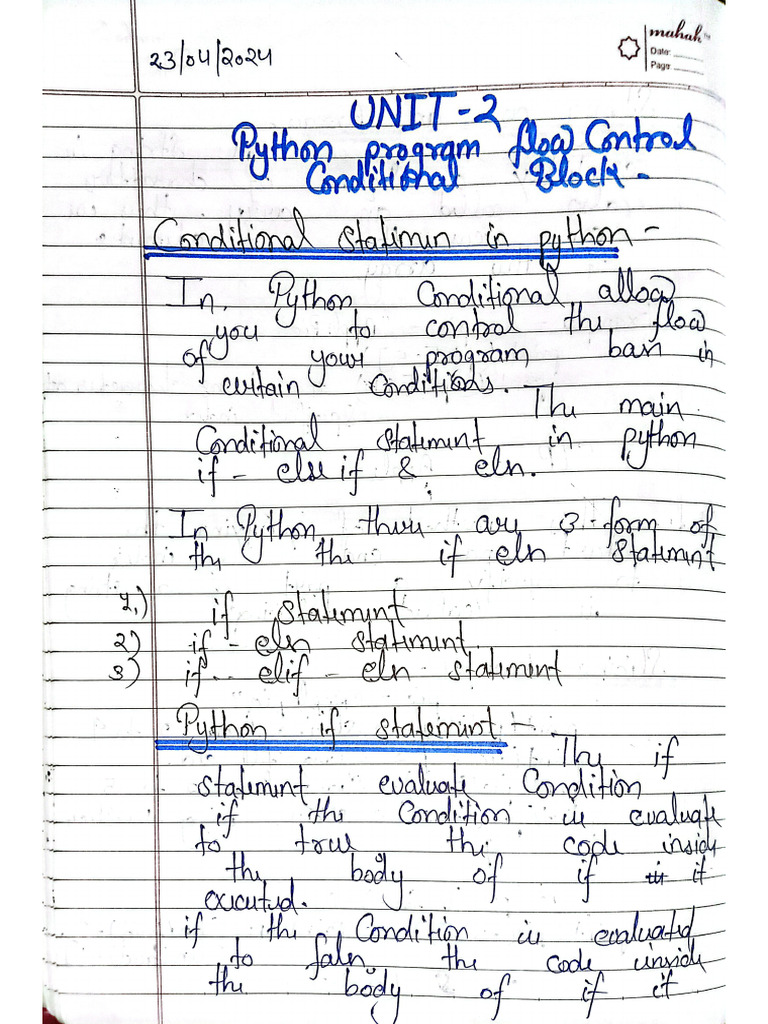 mahak
Date:
Page:
23/04/2024
UNIT-2
Python program flow Control
Conditional Block -
Conditional Statimun in python -
In Python Conditional allow
you to control the flow
of your program basi in
certain Conditions.
The main
Conditional statement in python
if - else if & eln.
In Python there are 3 form of
the the if eln statement
1.) if statement
2) if - eln statement
3) if - elif - eln statement
Python if statement :-
The if
statement evaluate Condition
if the Condition is evaluate
to true the code inside
the body of if it
executed.
if the Condition is evaluated
to faln the code inside
the body of if it